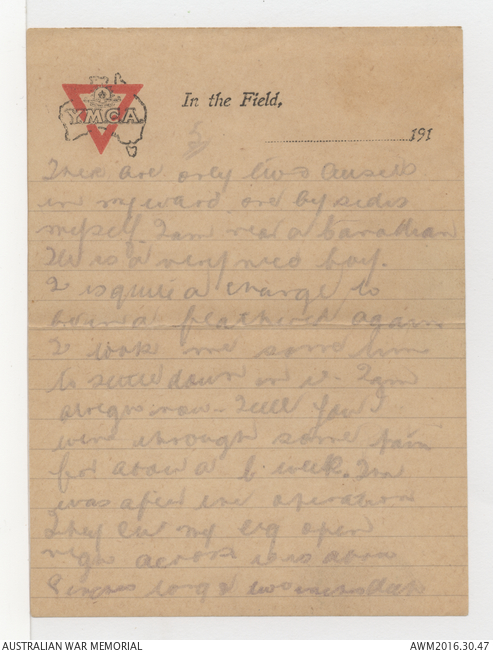 YMCA
In the Field,
191
5
There are only two Aussies
in my ward one besides
myself I am near a Canadian
He is a very nice boy.
I is quite a change to
be in a feather bed again.
I took me some time
to settle down in it. I am
alright now. I tell you I
went through some pain
for about a week.
was after the operation
They cut my leg open
right across it was about
long & two inches deep
AUSTRALIAN WAR MEMORIAL
AWM2016.30.47